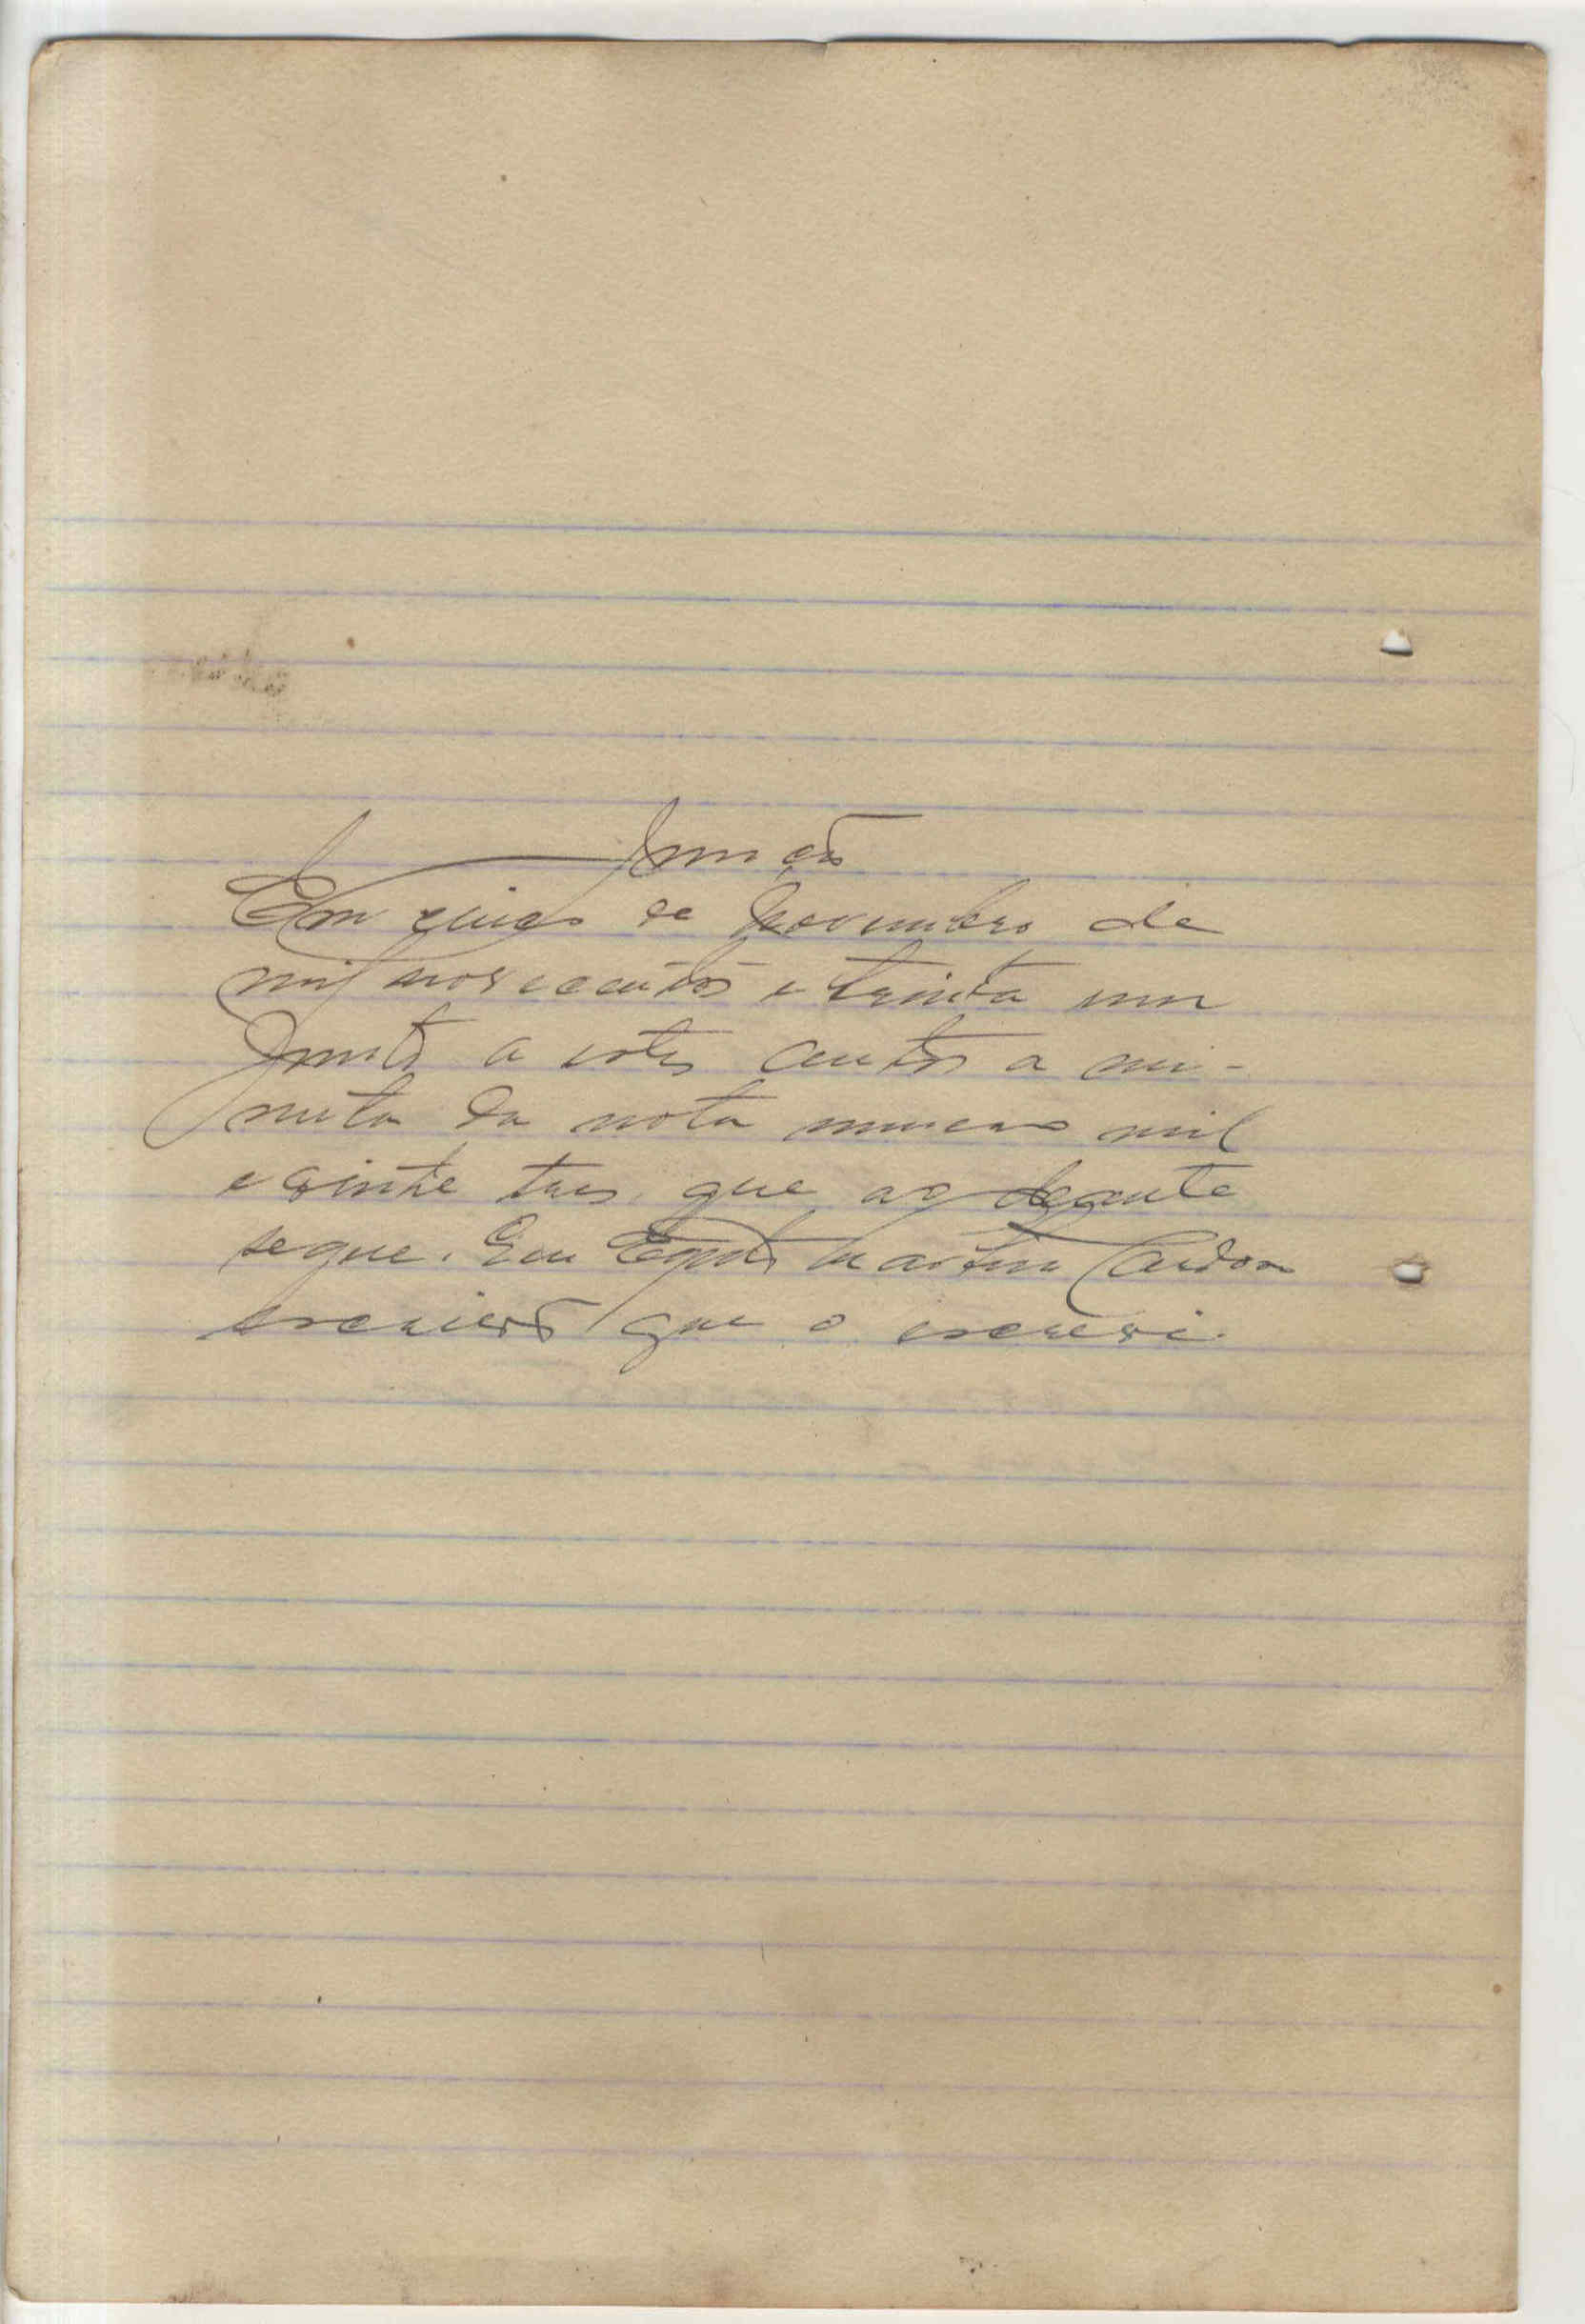 Junção
Em cinco de Novembro de
mil novecentos e trinta um
junto a estes autos a mi-
nuta da nota numero mil
e vinte tres que ao deante
segue. Eu Martins Cardoso
escrivão que o escrevi.